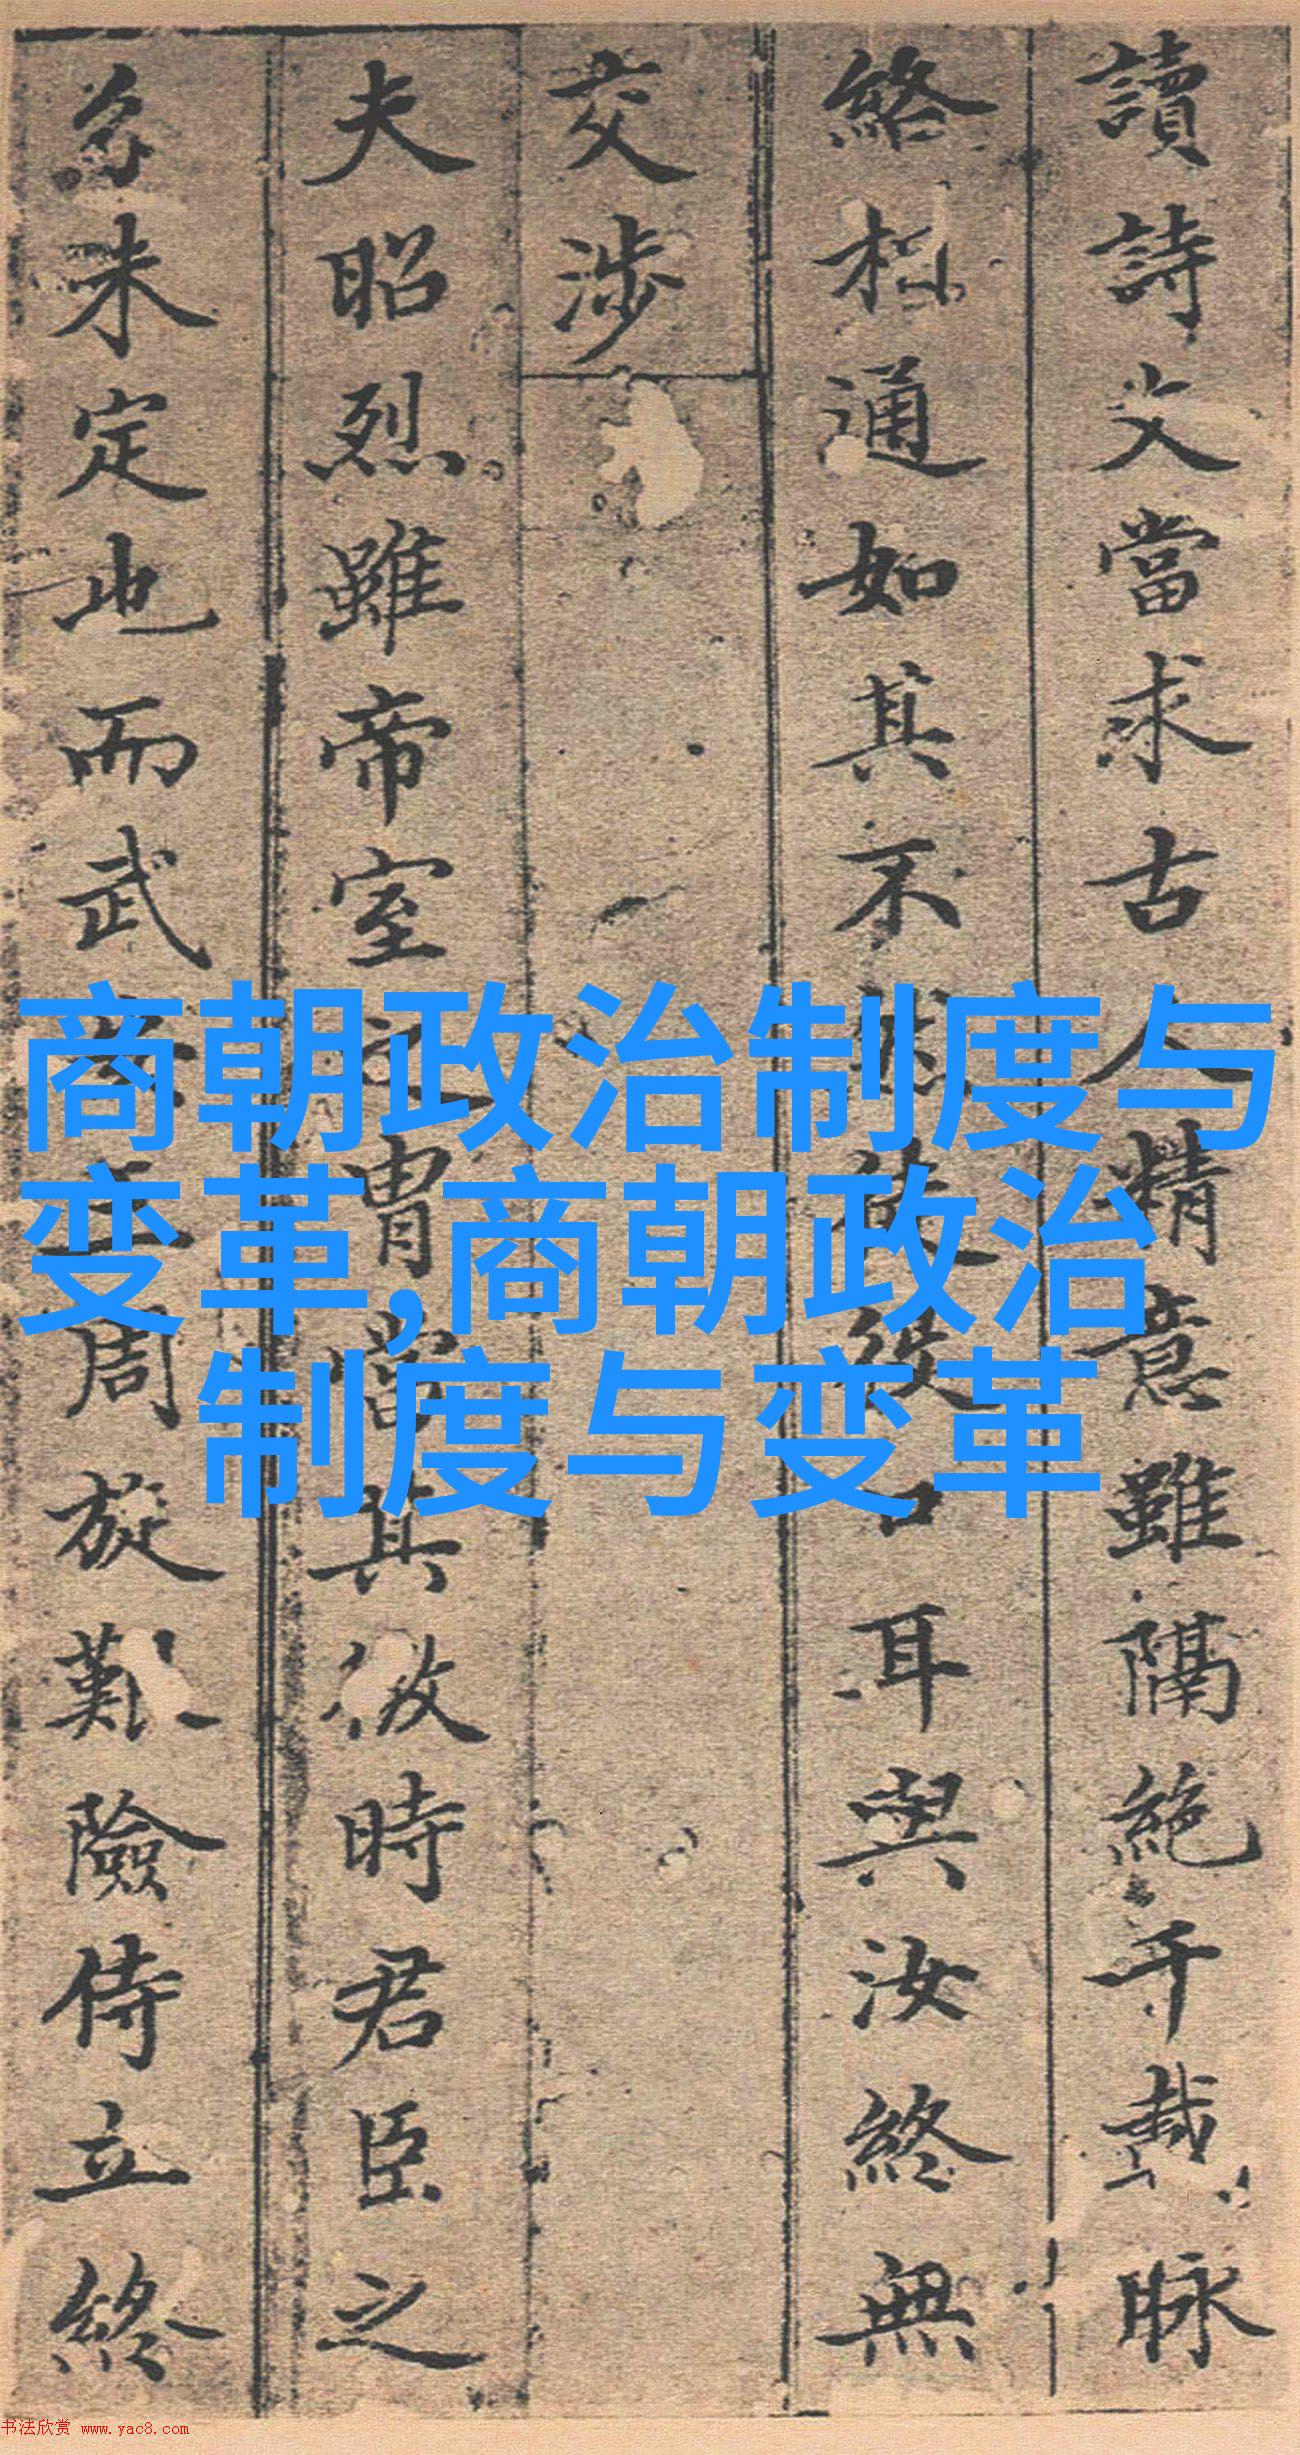 讀詩文當求古人精意雖隔絶千載脉
絡相通如其不然徒役口耳與汝終無
交涉
夫昭烈雖帝室之冑當其微時君臣之
未定也而武周旋艱險侍立終
商朝政治制度与
变革,商朝政治
制度与变革
书法欣赏 www.yac8.com